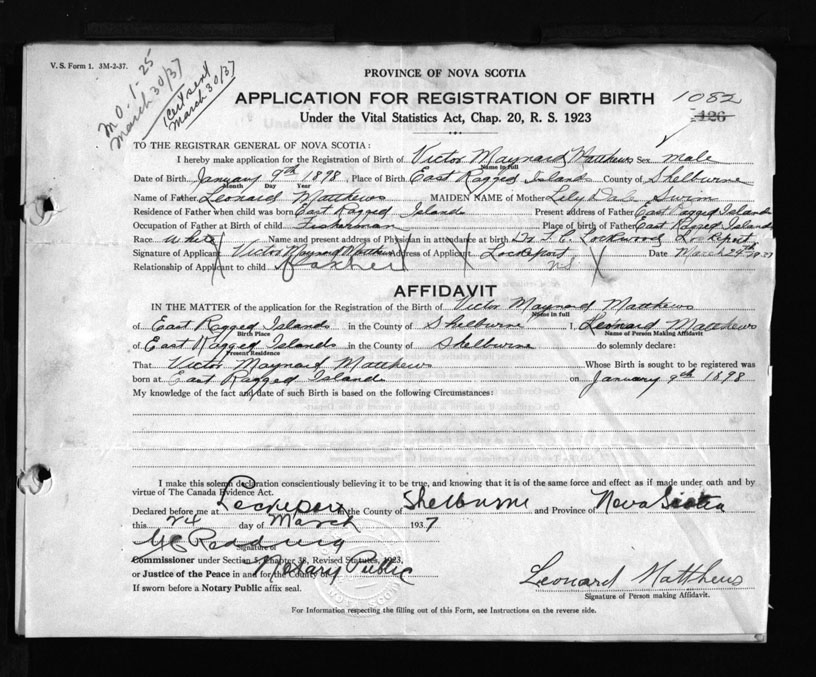 V. S. Form 1. 3M-2-37.
M.O. 1-25
March 30/37
Cert sent
March 30/37
PROVINCE OF NOVA SCOTIA
APPLICATION FOR REGISTRATION OF BIRTH 1082
Under the Vital Statistics Act, Chap. 20, R. S. 1923 126
TO THE REGISTRAR GENERAL OF NOVA SCOTIA:
I hereby make application for the Registration of Birth of Victor Maynard Matthews Sex male
Name in Full
Date of Birth January 9th 1898 Place of Birth East Ragged Islands County of Shelburne
Month Day Year
Name of Father Leonard Matthews MAIDEN NAME of Mother Lily Dale Swim
Residence of Father when child was born East Ragged Islands Present address of Father East Ragged Islands
Occupation of Father at Birth of child Fisherman Place of birth of Father East Ragged Islands
Race White Name and present address of Physician in attendance at birth Dr Lockwood Lockeport
Signature of Applicant Victor Maynard Matthews Address of Applicant Lockeport Date March 24th
Relationship of Applicant to child Father NS
AFFIDAVIT
IN THE MATTER of the application for the Registration of the Birth of Victor Maynard Matthews
Name in full
of East Ragged Islands in the County of Shelburne I, Leonard Matthews
Birth Place Name of Person Making Affidavit
of East Ragged Islands in the County of Shelburne do solemnly declare:
Present Residence
That Victor Maynard Matthews Whose Birth is sought to be registered was
born at East Ragged Islands on January 9th 1898
My knowledge of the fact and date of such Birth is based on the following Circumstances:
I make this solemn declaration conscientiously believing it to be true, and knowing that it is of the same force and effect as if made under oath and by
virtue of The Canada Evidence Act.
Declared before me at Lockeport in the County of Shelburne and Province of Nova Scotia
this 24 day of March 1937
Signature of
Commissioner under Section 5, Chapter 38, Revised Statutes, 1923,
or Justice of the Peace in and for the County of Notary Public
If sworn before a Notary Public affix seal.
Leonard Matthews
Signature of Person making Affidavit.
For Information respecting the filling out of this Form, see Instructions on the reverse side.